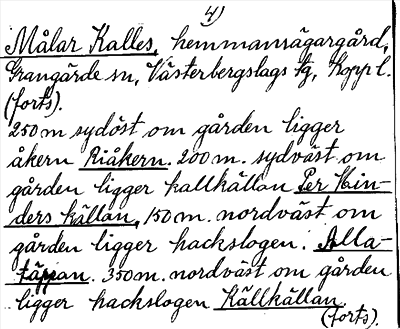 4)
Målar Kalles, hemmansägargård,
Grangärde sn, Västerbergslags tg, Kopp l.
(forts).
250 m sydöst om gården ligger
åkern Riåkern. 200 m. sydväst om
gården ligger kallkällan Per Hin-
ders källan, 150 m. nordväst om
gården ligger hackslogen. Alla-
täppan. 350 m. nordväst om gården
ligger hackslogen Källkällan
(forts).